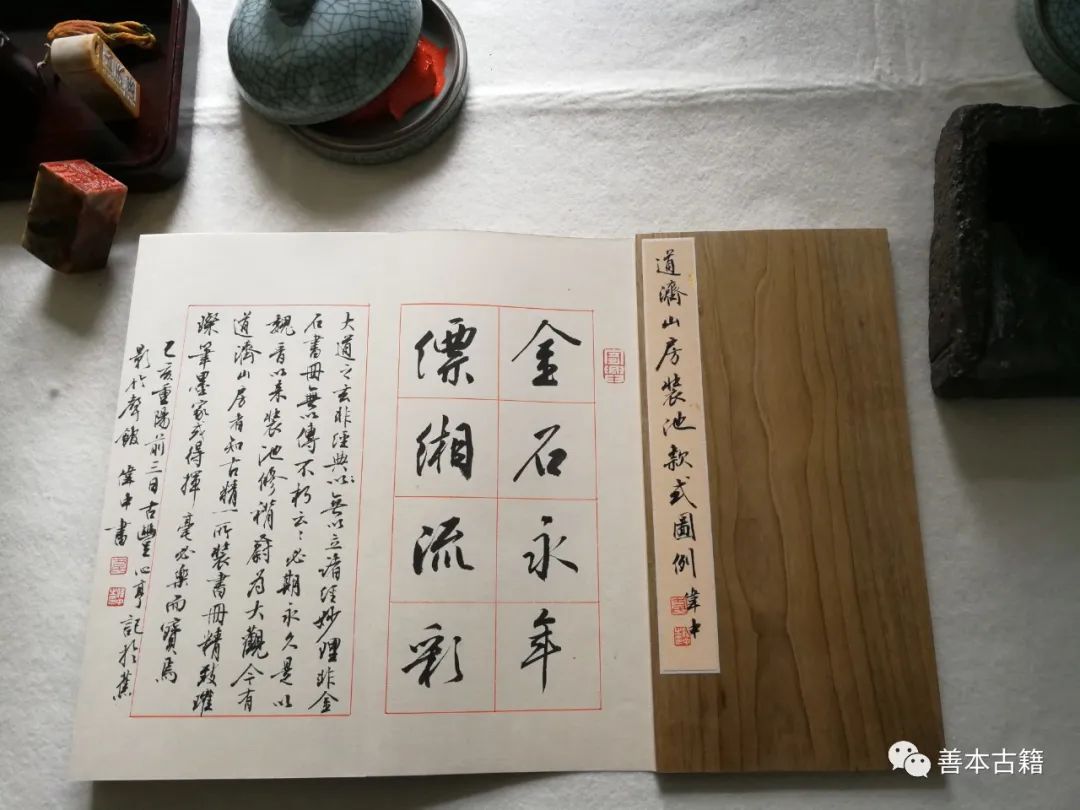 道濟山房裝池款式圖例
偉中
金石永年
縹緗流彩
大道之玄非經典無以立諸經妙理非金
石書冊無以傳不朽云云必期永久是以
魏晉以來裝池修褙蔚為大觀今有
道濟山房者知古精一所裝書冊精致璀
璨筆墨家或得揮毫必樂而寶焉
己亥重陽前三日古豳心亭記於蕉
影竹聲館 偉中書
善本古籍